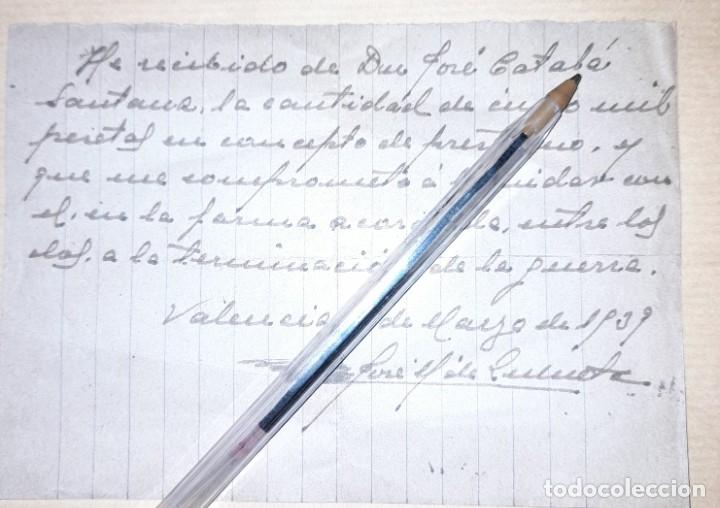 He recibido de Don José Catalá
Santana, la cantidad de mil
pesetas en concepto de , y
que me comprometo á con
el, en la forma entre los
dos, a la terminación de la guerra.
Valencia de Marzo de 1939
José Mª de
todocoleccion